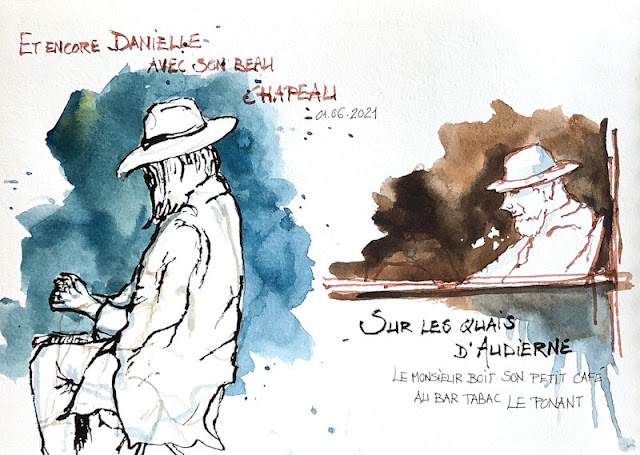 ET ENCORE DANIELLE
AVEC SON BEAU
CHAPEAU
01.06.2021
SUR LES QUAIS
D'AUDIERNE
LE MONSIEUR BOIT SON PETIT CAFE
AU BAR TABAC LE PONANT